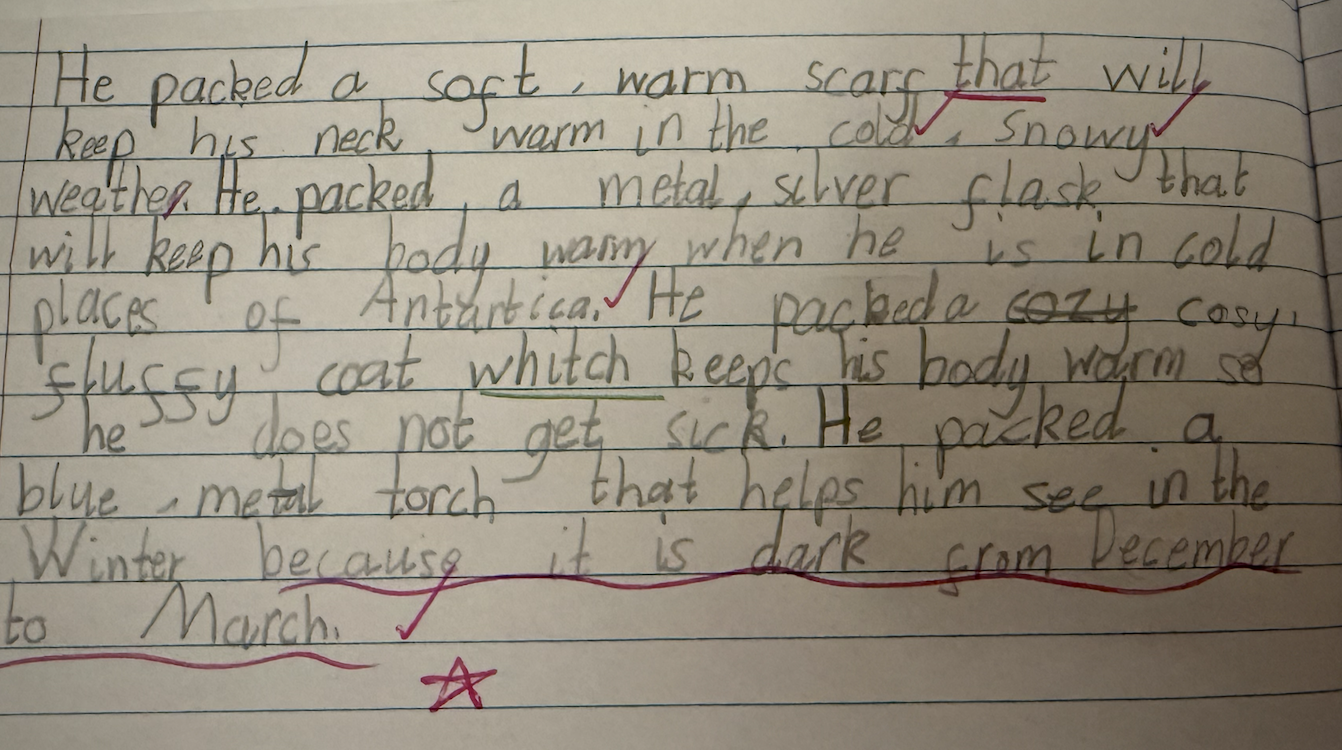 He packed a soft, warm scarf that will
keep his neck warm in the cold, Snowy
weather. He packed a metal, silver flask that
will keep his body warm when he is in cold
places of Antartica. He packed a cozy cosy,
fluffy coat whitch keeps his body warm so
he does not get sick. He packed a
blue, metal torch that helps him see in the
Winter because it is dark from December
to March.